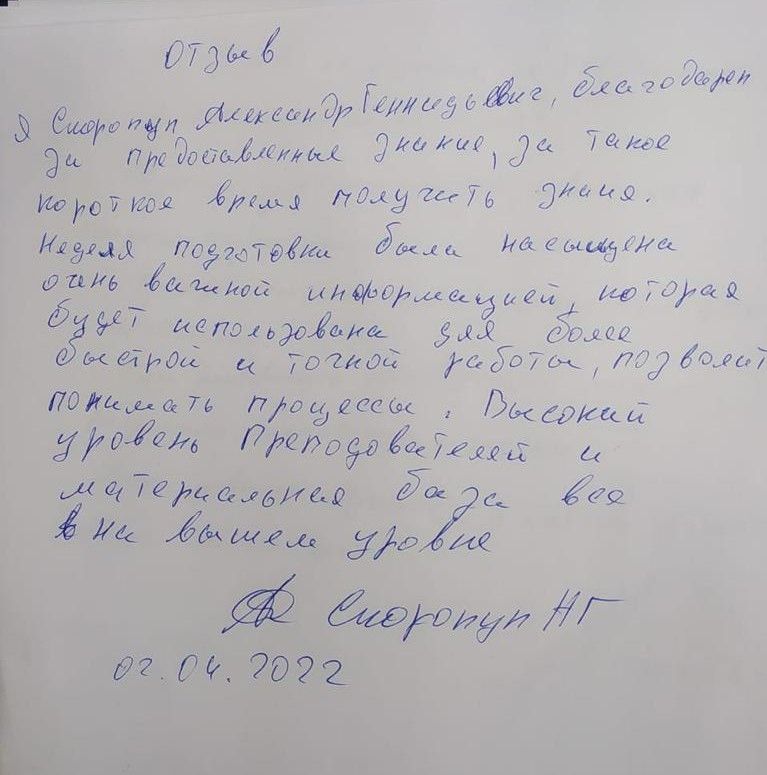 Отзыв
Я Скоропуп Александр Геннидьевич, благодарен
за предоставленные знание, за такое
короткое время получить знаия.
Неделя подготовки была насыщена
очень важной информацией, которая
будет использована для более
быстрой и точной работы, позволит
понимать процессы. Высокий
уровень Преподователей и
материальная база все
на вышем уровне
Скоропуп АГ
02.04.2022